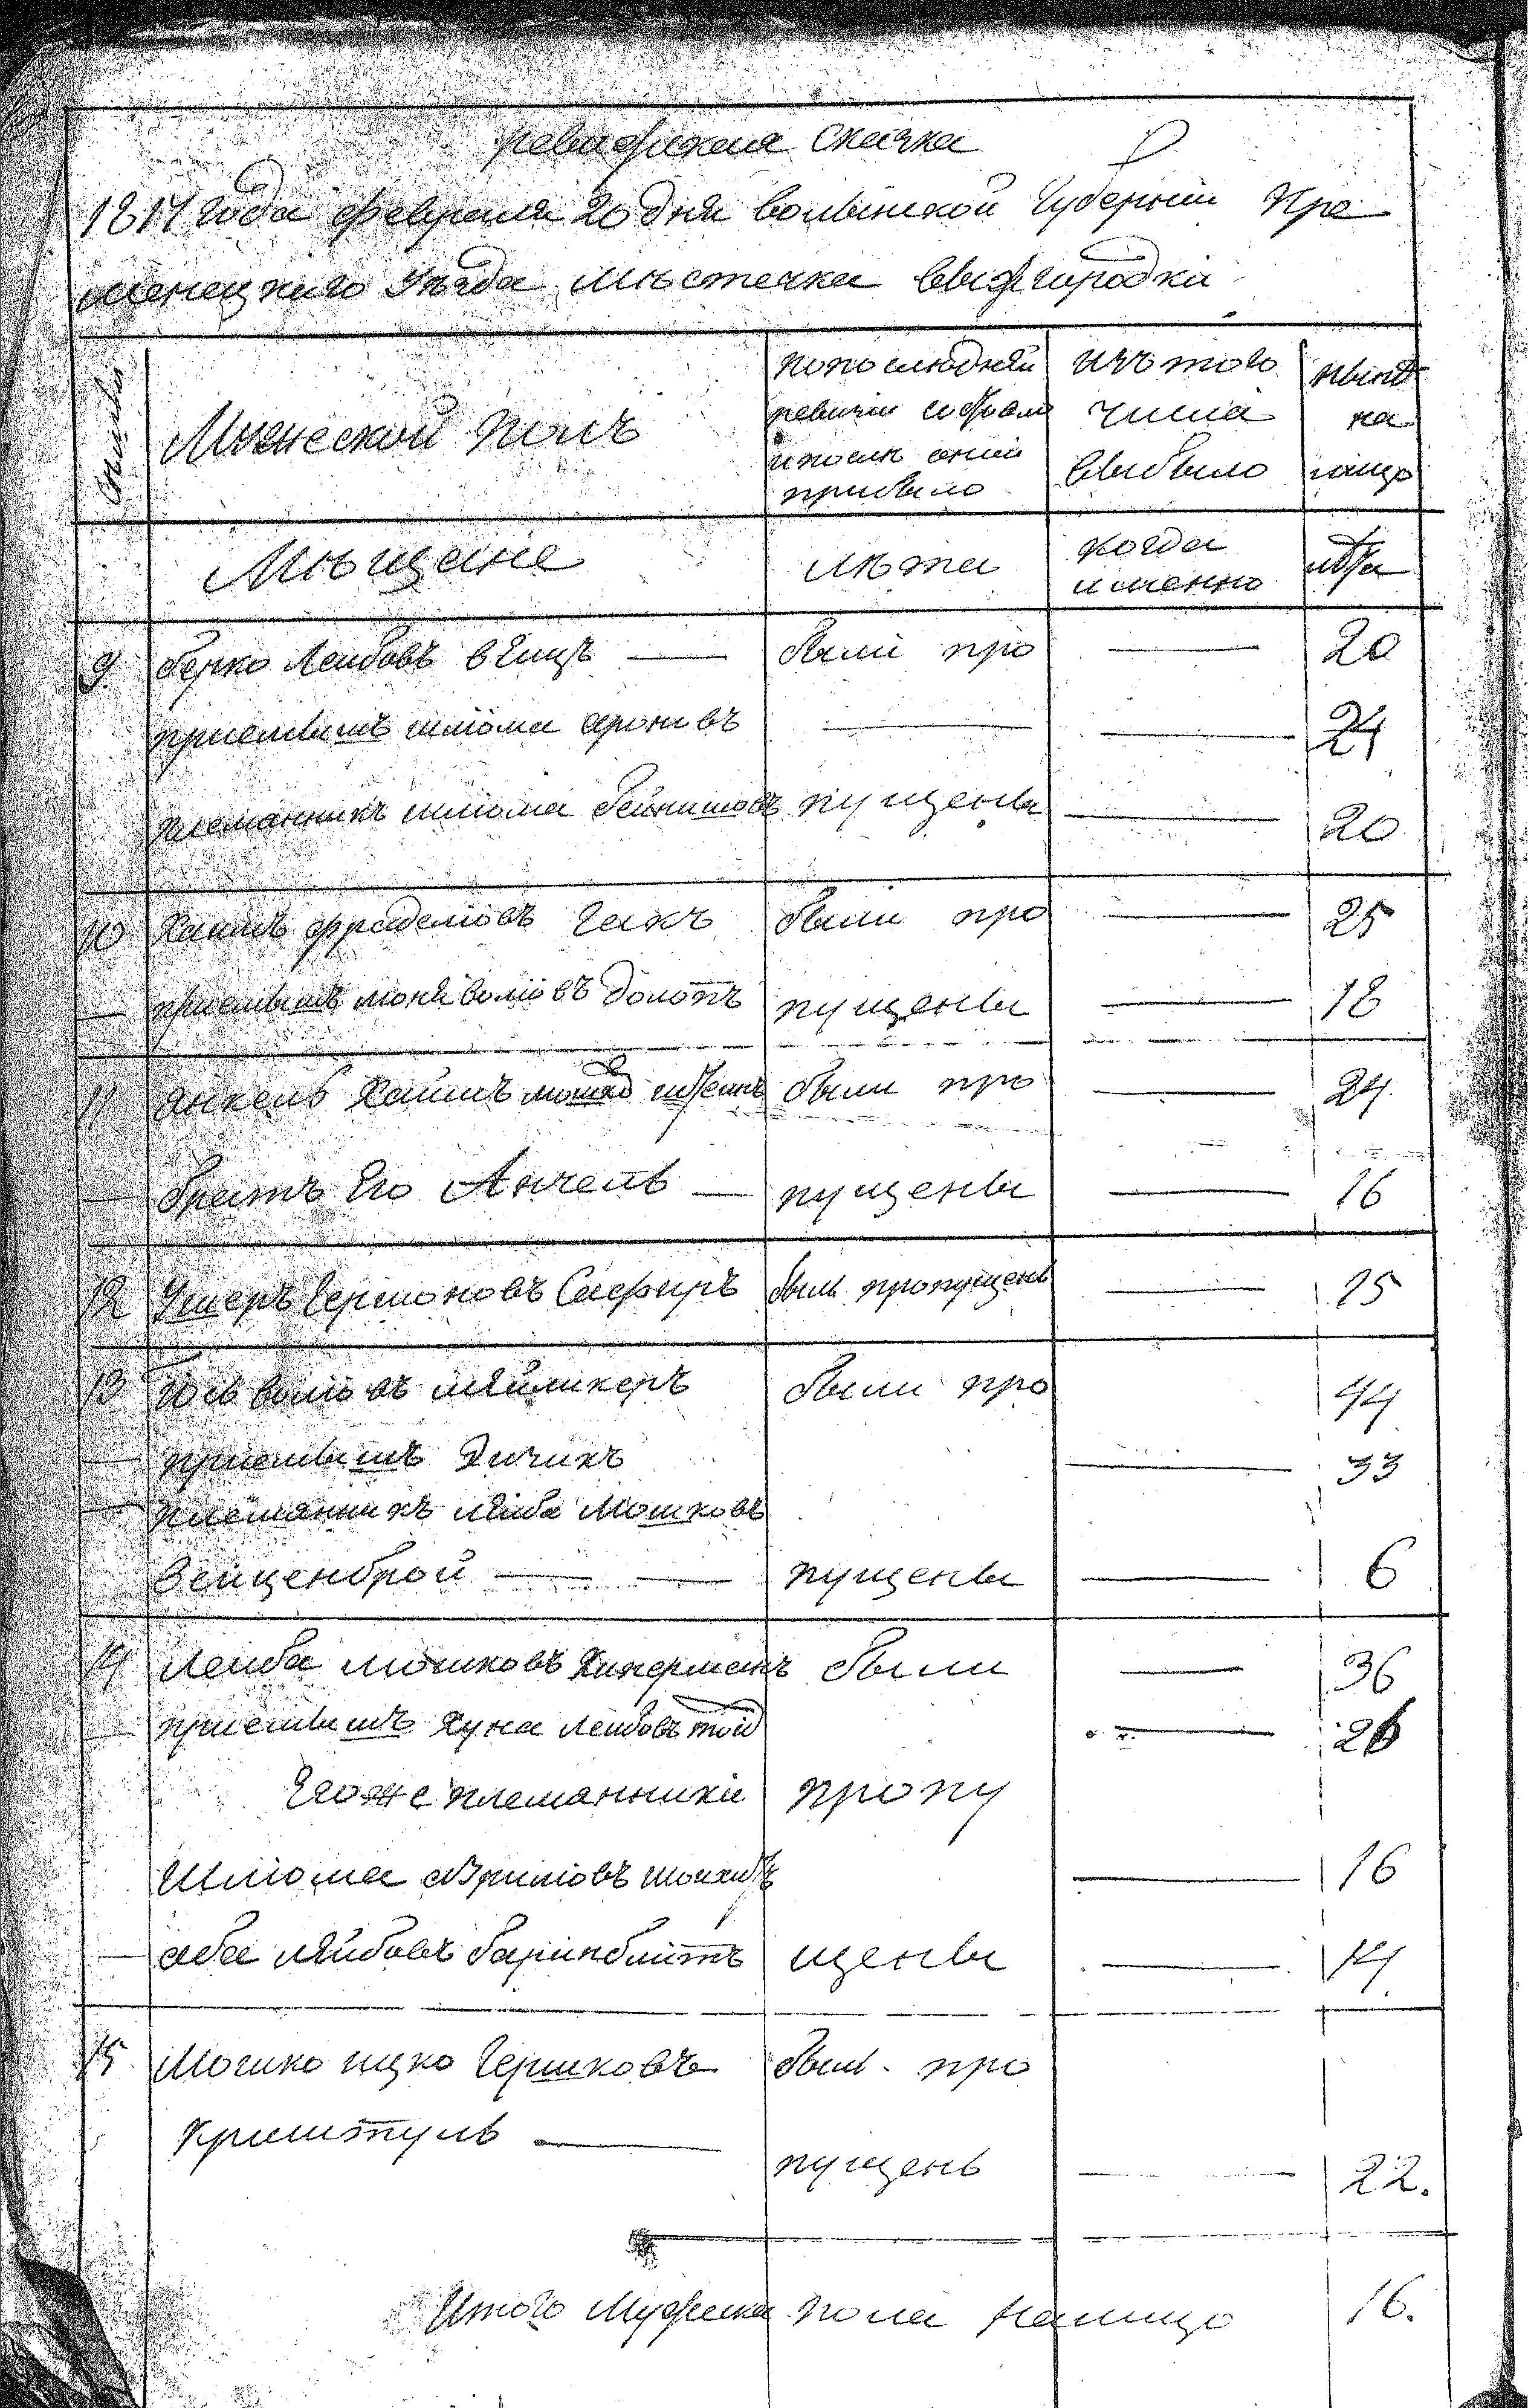 ревизская Сказка
1817 года февраля 20 дня волынской Губернии Кре
менецкаго Уѣзда Мѣстечка Выжгородка
Мужеской полъ
попослѣдней ревизіи состояло и послѣ оной прибыло
изъ того числа выбыло
нынѣ на лицо
Мѣщане
лѣта
когда именно
лѣта
9 берко Лейбовъ были про 20
приемышъ шлиома ароновъ 24
племянникъ шлиома пущены 20
10 Хаимъ фраделиовъ Гакъ были про 25
приемышъ волиовъ долотъ пущены 18
11 Янкель Хаимъ были про 24.
братъ Его Анчель пущены 16
12 Ушеръ Гершоновъ Сафиръ былъ пропущенъ 25
13 волиовъ были про 44
приемышъ 33
племянникъ лейба Мошковъ
Зейценброй пущены 6
14 Лейба мошковъ Кикерманъ были 36
приемышъ Хуна лейбовъ 26
Егоже племянники пропу
Шлиома 16
аба лейбовъ щены 14
15 Мошко ицко Гершковъ былъ про
Криштуль
пущенъ 22.
Итого Мужеска пола налицо 16.